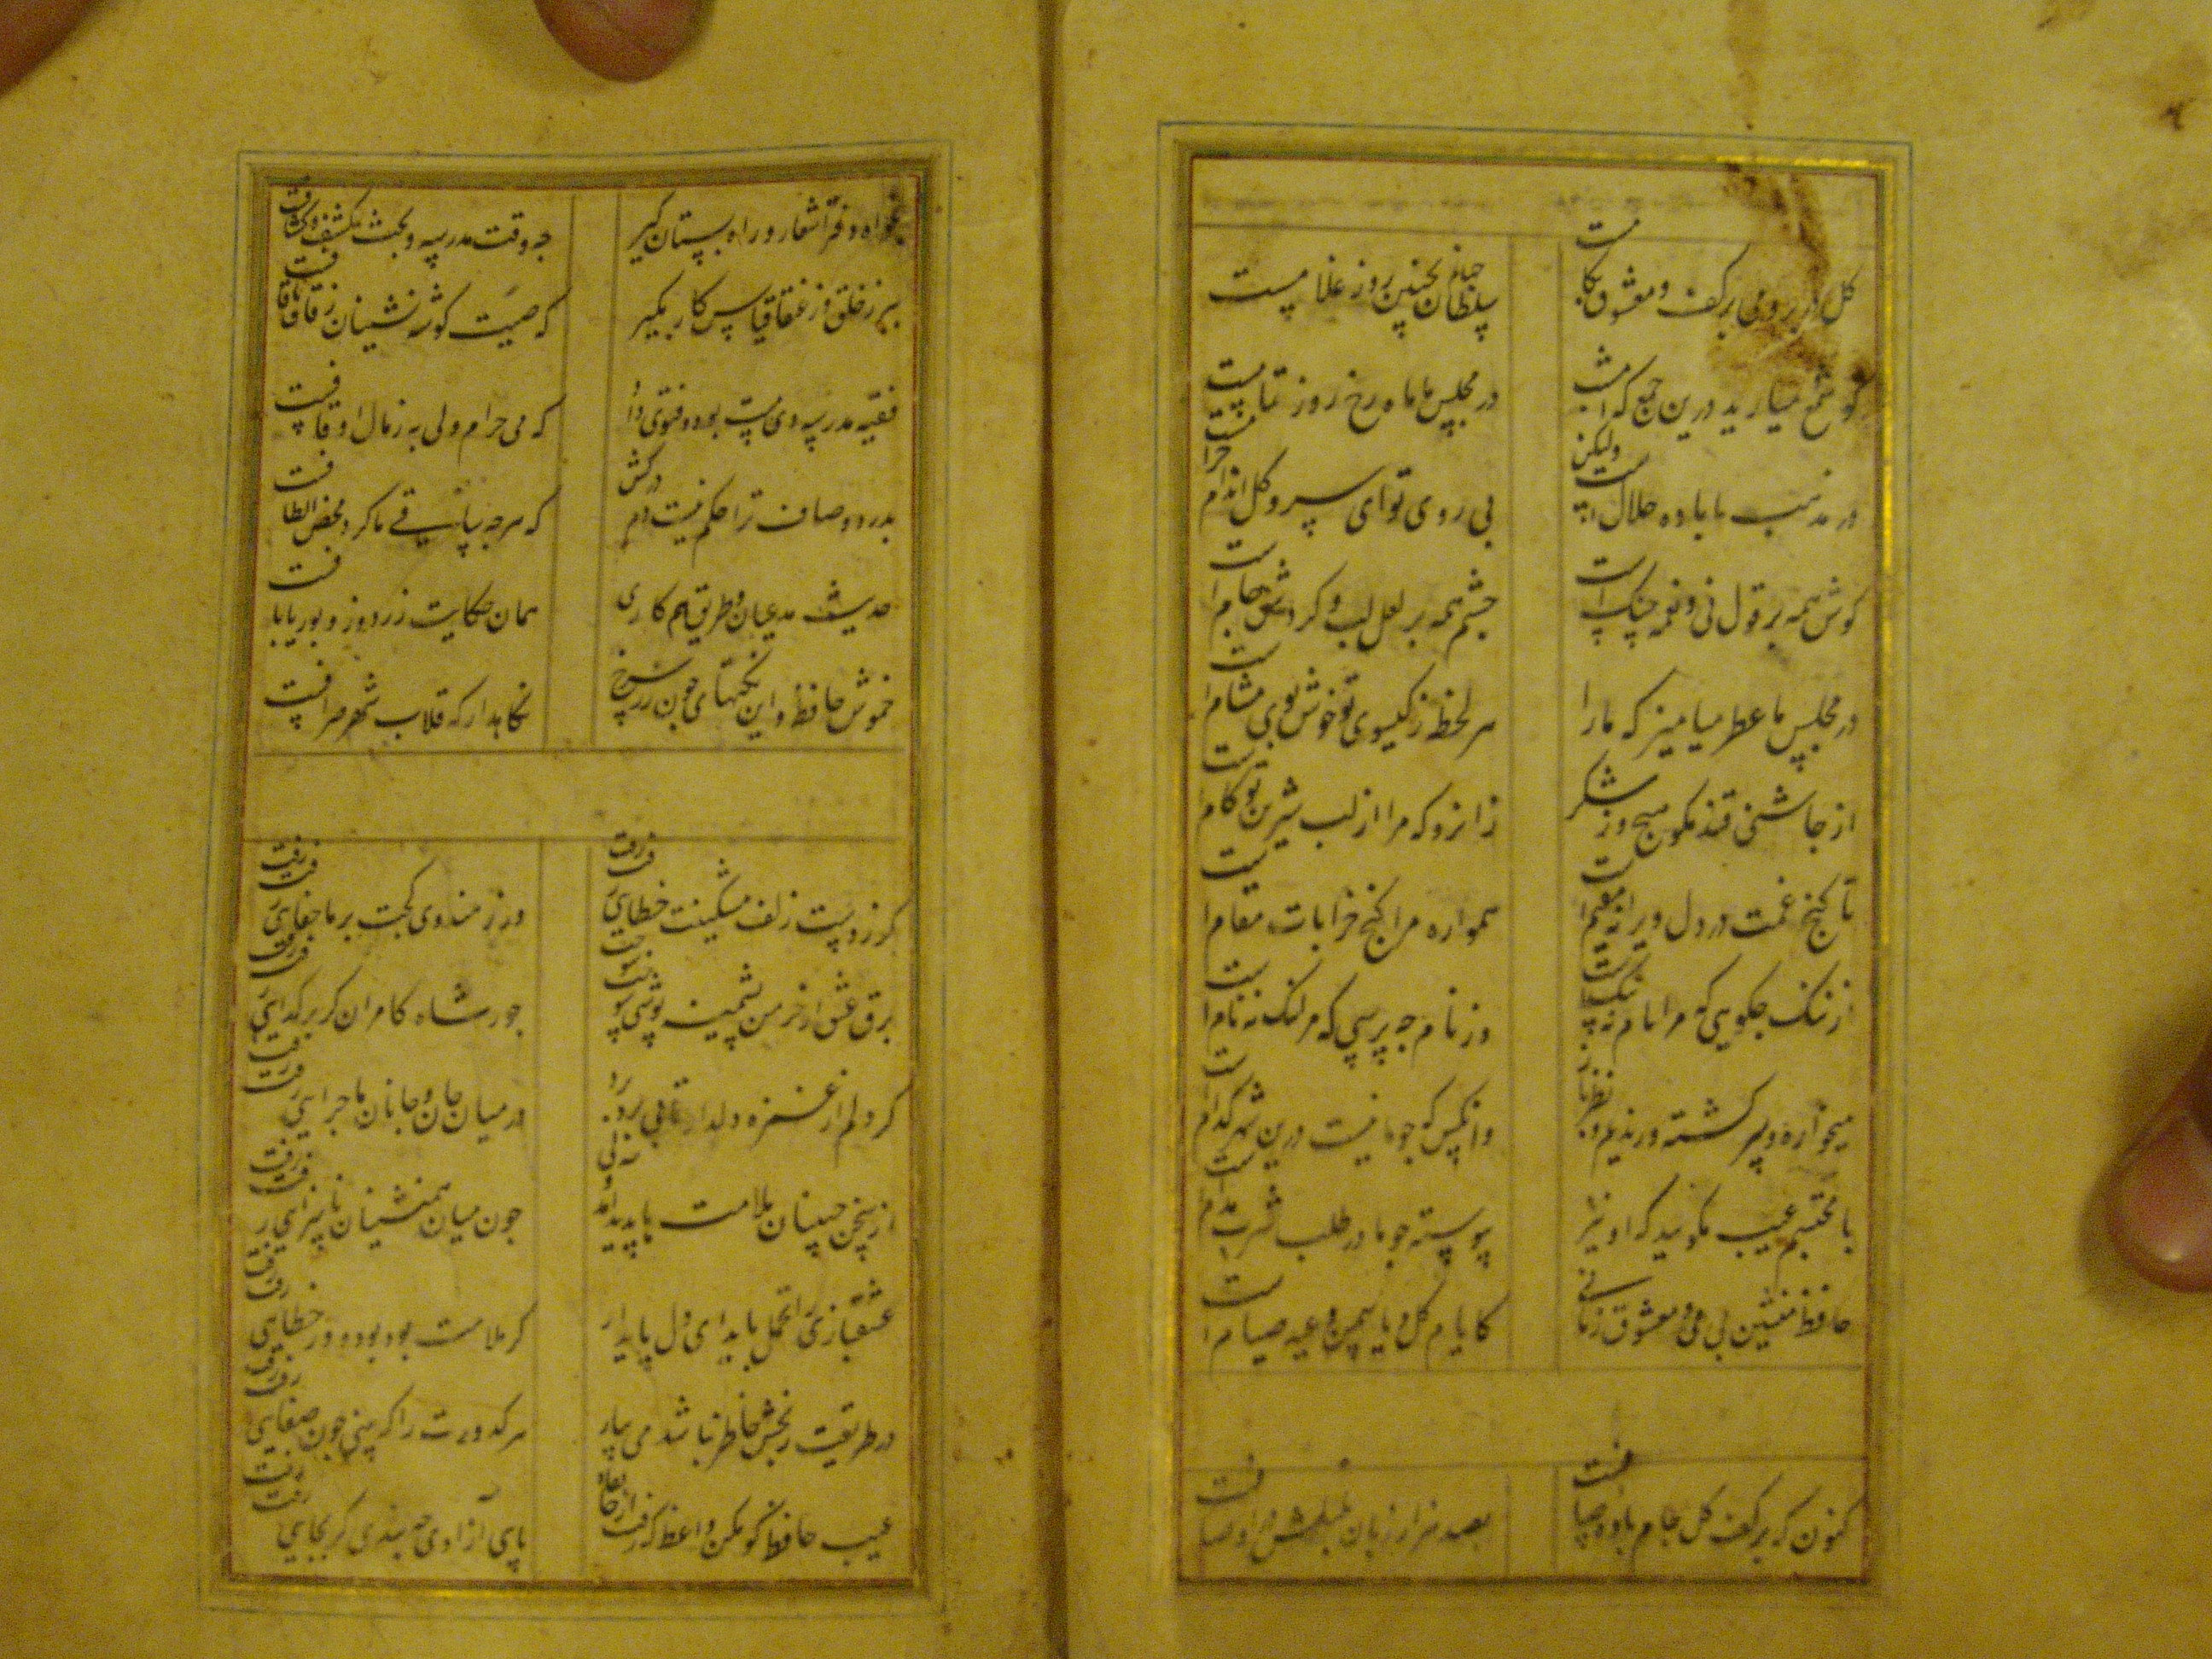 کل در بر و می بر کف و معشوق بکامست
سلطان جهانم بچنین روز غلامست
کو شمع میارید درین جمع که امشب
در مجلس ما ماه رخ روز تمامست
در مذهب ما باده حلالست ولیکن
بی روی تو ای سرو کل اندام حرامست
کوشم همه بر قول نی و نغمه چنکست
چشمم همه بر لعل لب و کردش جامست
در مجلس ما عطر میامیز که ما را
هر لحظه ز کیسوی تو خوش بوی مشامست
از چاشنی قند مکو هیچ و ز شکر
زانرو که مرا از لب شیرین تو کامست
تا کنج غمت در دل ویرانه مقیمست
همواره مرا کنج خرابات مقامست
از ننک چکویی که مرا نام ز ننکست
وز نام چه پرسی که مرا ننک ز نامست
میخواره و سرکشته و رندیم و نظرباز
وانکس که چو ما نیست درین شهر کدامست
با محتسبم عیب مکویید که او نیز
پیوسته چو ما در طلب شرب مدامست
حافظ منشین بی می و معشوق زمانی
کایام کل و یاسمن و عید صیامست
کنون که بر کف کل جام باده صافست
بصد هزار زبان بلبلش در اوصافست
بخواه دفتر اشعار و راه بستان کیر
چه وقت مدرسه و بحث کشف کشافست
ببر ز خلق و ز عنقا قیاس کار بکیر
که صیت کوشه نشینان ز قاف تا قافست
فقیه مدرسه دی مست بود و فتوی داد
که می حرام ولی به ز مال اوقافست
بدرد و صاف ترا حکم نیست دم درکش
که هرچه ساقی ما کرد محض الطافست
حدیث مدعیان و طریق همکاری
همان حکایت زردوز و بوریابافست
خموش حافظ و این نکتهای چون زر سرخ
نکاهدار که قلاب شهر صرافست
کر ز دست زلف مشکینت خطایی رفت رفت
ور ز هندوی بر ما جفایی رفت رفت
برق عشق ار خرمن پشمینه پوشی سوخت سوخت
جور شاه کامران کر بر کدایی رفت رفت
کر دلم از غمزه دلدار تابی برد برد
در میان جان و جانان ماجرایی رفت رفت
از سخن چینان ملامت ها پدید آمد ولی
چون میان همنشینان ناسزایی رفت رفت
عشقبازی را تحمل باید ای دل پایدار
کر ملامت بود بود ور خطایی رفت رفت
در طریقت رنجش خاطر نباشد می بیار
هر کدورت را که بینی چون صفایی رفت رفت
عیب حافظ کو مکن واعظ که رفت از خانقاه
پای آزادی چه بندی کر بجایی رفت رفت